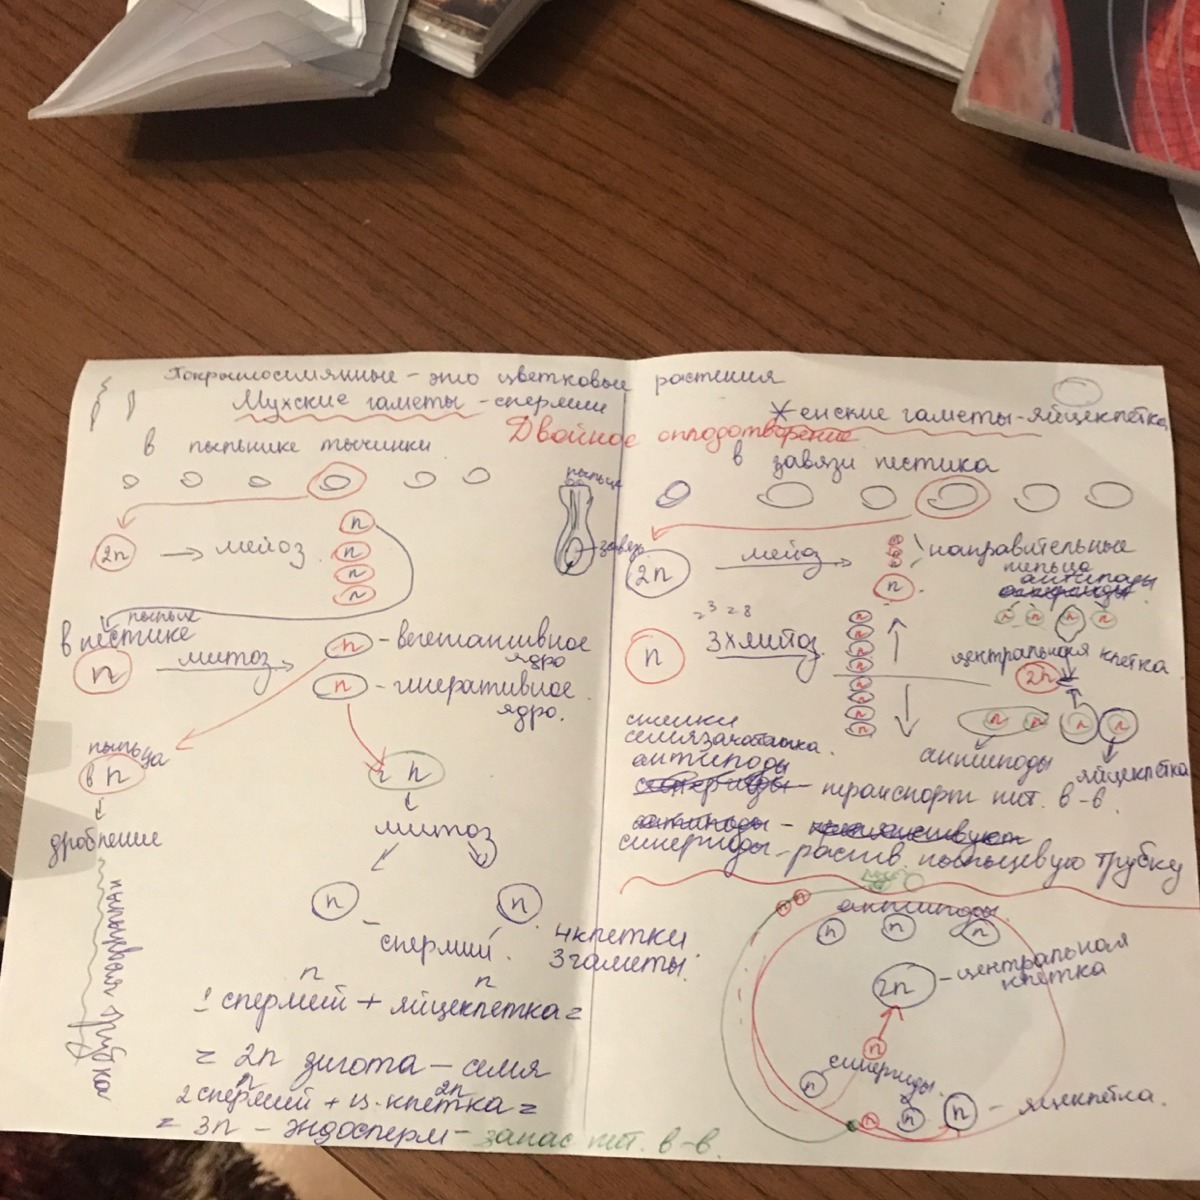 Покрытосимянные - это цветковые растения
Мухские гаметы - спермии
Женские гаметы - яйцеклетка
Двойное оплодотворение
в пыльнике тычинки
в завязи пестика
пыльца
завязь
2n → мейоз
n
n
n
n
2n мейоз
n
направительные
тельца
антиподы
n n n n
в пестике
пыльце
n митоз
n - вегетативное
ядро
n - генеративное
ядро.
2³ = 8
n 3х митоз
n
n
n
n
n
n
n
n
центральная клетка
2n
n n n n
антиподы
яйцеклетка
стенки
семязачатка.
антиподы
- транспорт пит. в-в.
синергиды - раств. пыльцевую трубку
пыльца
в n
дробление
пыльцевая трубка
г n
митоз
n n
спермий
4 клетки
3 гаметы.
n n
1 спермий + яйцеклетка =
= 2n зигота - семя
n 2n
2 спермий + ц. клетка =
= 3n - эндосперм - запас пит. в-в.
n n
антиподы.
n n n
2n - центральная
клетка
n
синергиды.
n n
n
n - яйцеклетка.